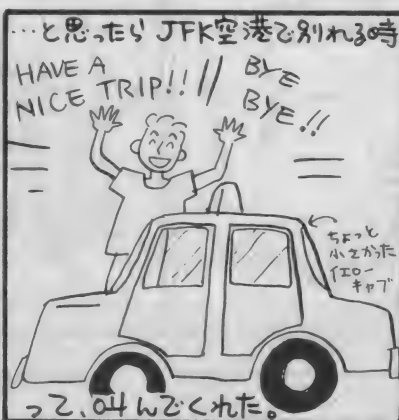 …と思ったら JFK空港で別れる時
HAVE A
NICE TRIP!!
BYE
BYE!!
ちょっと
小さかった
イエロー
キャブ
って、叫んでくれた。